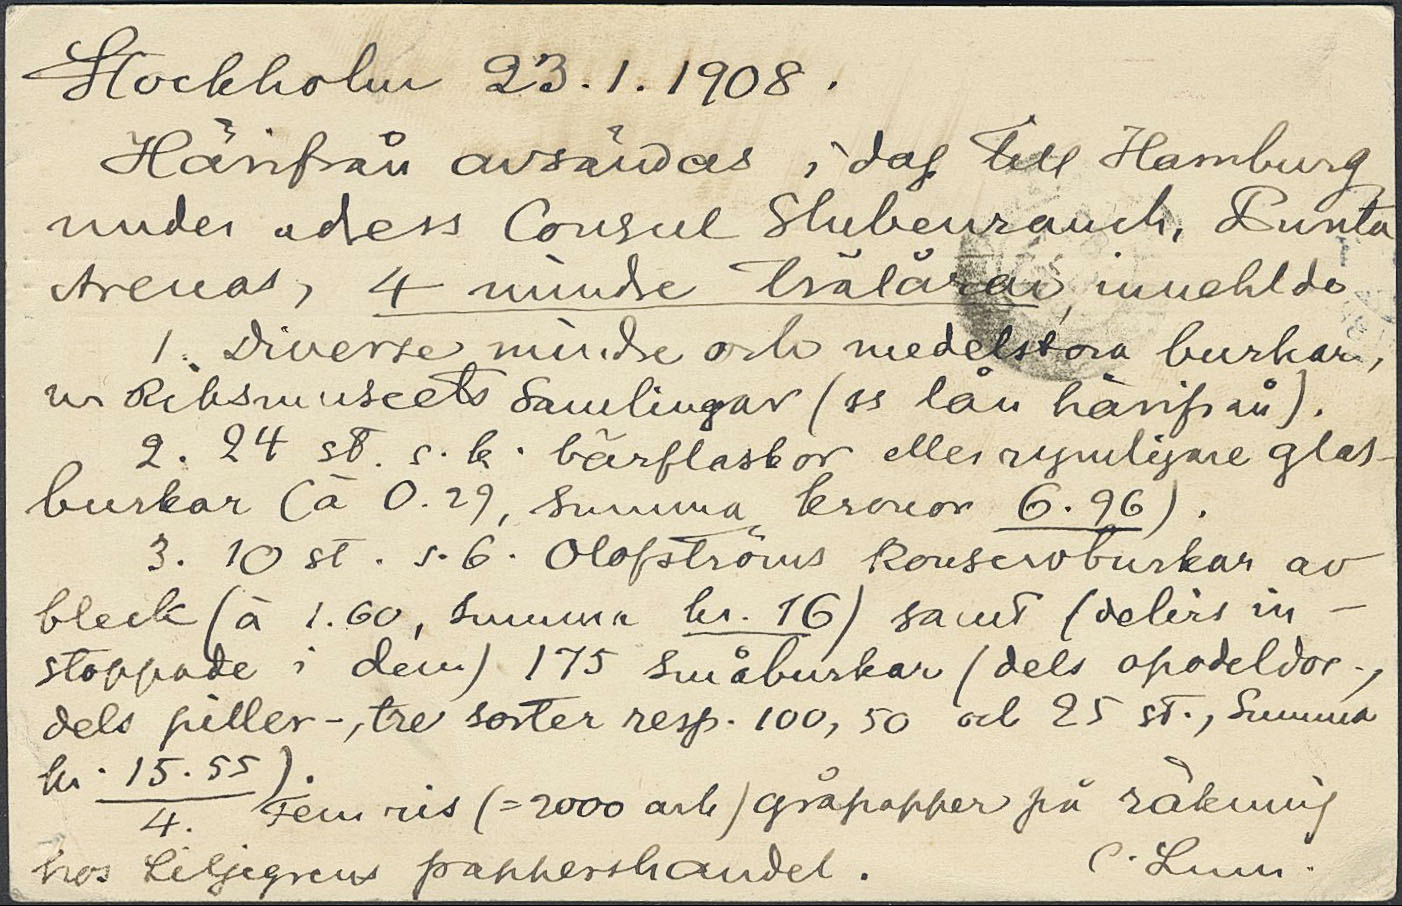 Stockholm 23.1.1908.
Härifrån avsändas i dag till Hamburg
under adress Consul Stubenrauch, Punta
Arenas, 4 mindre trälårar, innehlde
1. Diverse mindre och medelstora burkar,
ur Riksmuseets Samlingar (ss lån härifrån).
2. 24 st. s.k. bärflaskor eller rymligare glas-
burkar (à 0.29, Summa kronor 6.96).
3. 10 st. s.k. Olofströms konservburkar av
bleck (à 1.60, Summa kr. 16) samt (delvis in-
stoppade i dem) 175 småburkar (dels opodeldoc-,
dels piller-, tre sorter resp. 100, 50 och 25 st., Summa
kr. 15.55).
4. Fem ris (=2000 ark) gråpapper på räkning
hos Liljegrens pappershandel. C. Lnm.